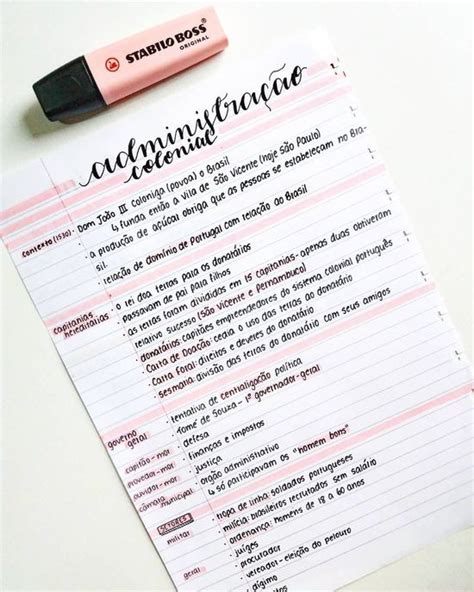 STABILO BOSS
ORIGINAL
administração
colonial
contexto (1530)
· Dom João III coloniza (povoa) o Brasil
↳ funda então a vila de São Vicente (hoje São Paulo)
· a produção de açúcar obriga que as pessoas se estabeleçam no Bra-
sil.
· relação de domínio de Portugal com relação ao Brasil
capitanias
hereditárias
· o rei doa terras para os donatários
· passavam de pai para filhos
· as terras foram divididas em 15 capitanias - apenas duas obtiveram
relativo sucesso (São Vicente e Pernambuco)
· donatários: capitães empreendedores do sistema colonial português
· Carta de Doação: cedia o uso das terras ao donatário
· Carta foral: direitos e deveres do donatário
· sesmaria: divisão das terras do donatário com seus amigos
governo
geral
· tentativa de centralização política
· Tomé de Souza - 1º governador-geral
capitão-mor
· defesa
provedor-mor
· finanças e impostos
ouvidor-mor
· justiça
câmara
municipal
· órgão administrativo
↳ só participavam os "homem bons"
SETORES
militar
· tropa de linha: soldados portugueses
· milícia: brasileiros recrutados sem salário
· ordenança: homens de 18 a 60 anos
geral
· juízes
· procurador
· vereador - eleição do pelouro
· dízimo